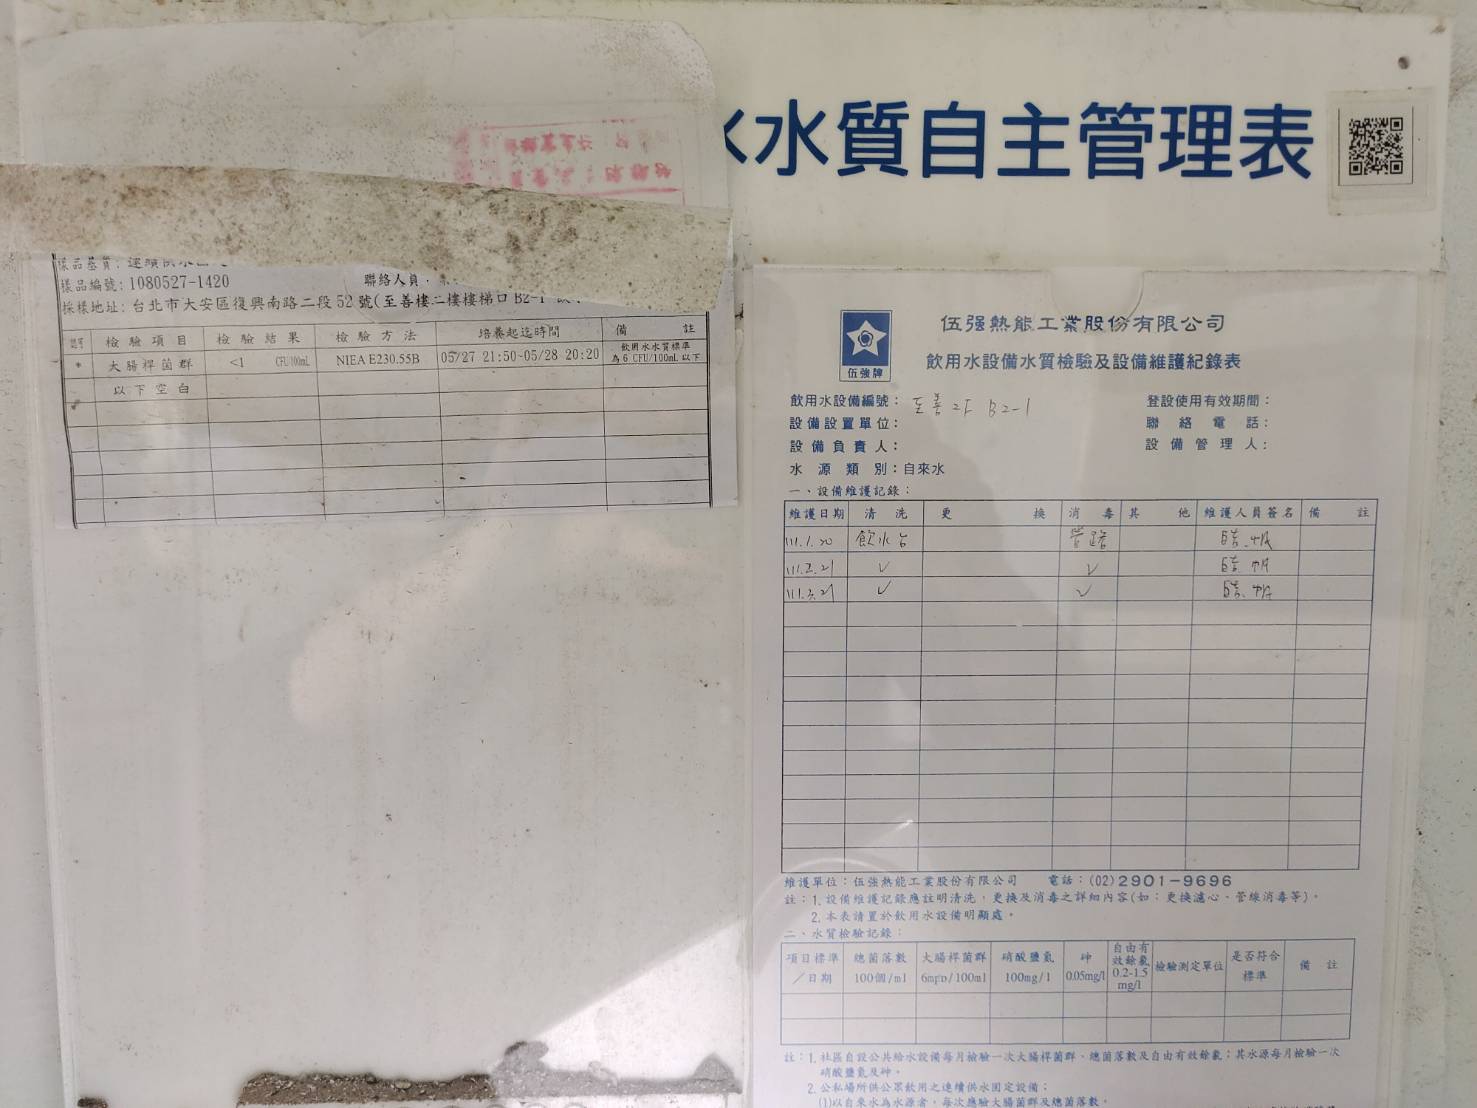 水質自主管理表
樣品基質: 連續供水
樣品編號: 1080527-1420
聯絡人員:
採樣地址: 台北市大安區復興南路二段52號(至善樓二樓樓梯口 B2-1
檢驗項目 檢驗結果 檢驗方法 培養起迄時間 備註
* 大腸桿菌群 <1 CFU/100mL NIEA E230.55B 05/27 21:50~05/28-20:20 飲用水水質標準為 6 CFU/100mL 以下
以下空白
伍强熱能工業股份有限公司
伍強牌
飲用水設備水質檢驗及設備維護紀錄表
飲用水設備編號: 至善2F B2-1 登設使用有效期間:
設備設置單位: 聯絡電話:
設備負責人: 設備管理人:
水源類別:自來水
一、設備維護記錄:
維護日期 清洗 更換 消毒 其他 維護人員簽名 備註
111.1.20 飲水台 管路
111.2.21 ✓ ✓
111.3.21 ✓ ✓
維護單位:伍強熱能工業股份有限公司 電話:(02)2901-9696
註:1.設備維護記錄應註明清洗,更換及消毒之詳細內容(如:更換濾心、管線消毒等)。
2.本表請置於飲用水設備明顯處。
二、水質檢驗記錄:
項目標準/日期 總菌落數 100個/ml 大腸桿菌群 6mpn/100ml 硝酸鹽氮 100mg/l 砷 0.05mg/l 自由有效餘氯 0.2-1.5 mg/l 檢驗測定單位 是否符合標準 備註
註:1.社區自設公共給水設備每月檢驗一次大腸桿菌群、總菌落數及自由有效餘氯;其水源每月檢驗一次
硝酸鹽氮及砷。
2.公私場所供公眾飲用之連續供水固定設備:
(1)以自來水為水源者,每次應驗大腸菌群及總菌落數。